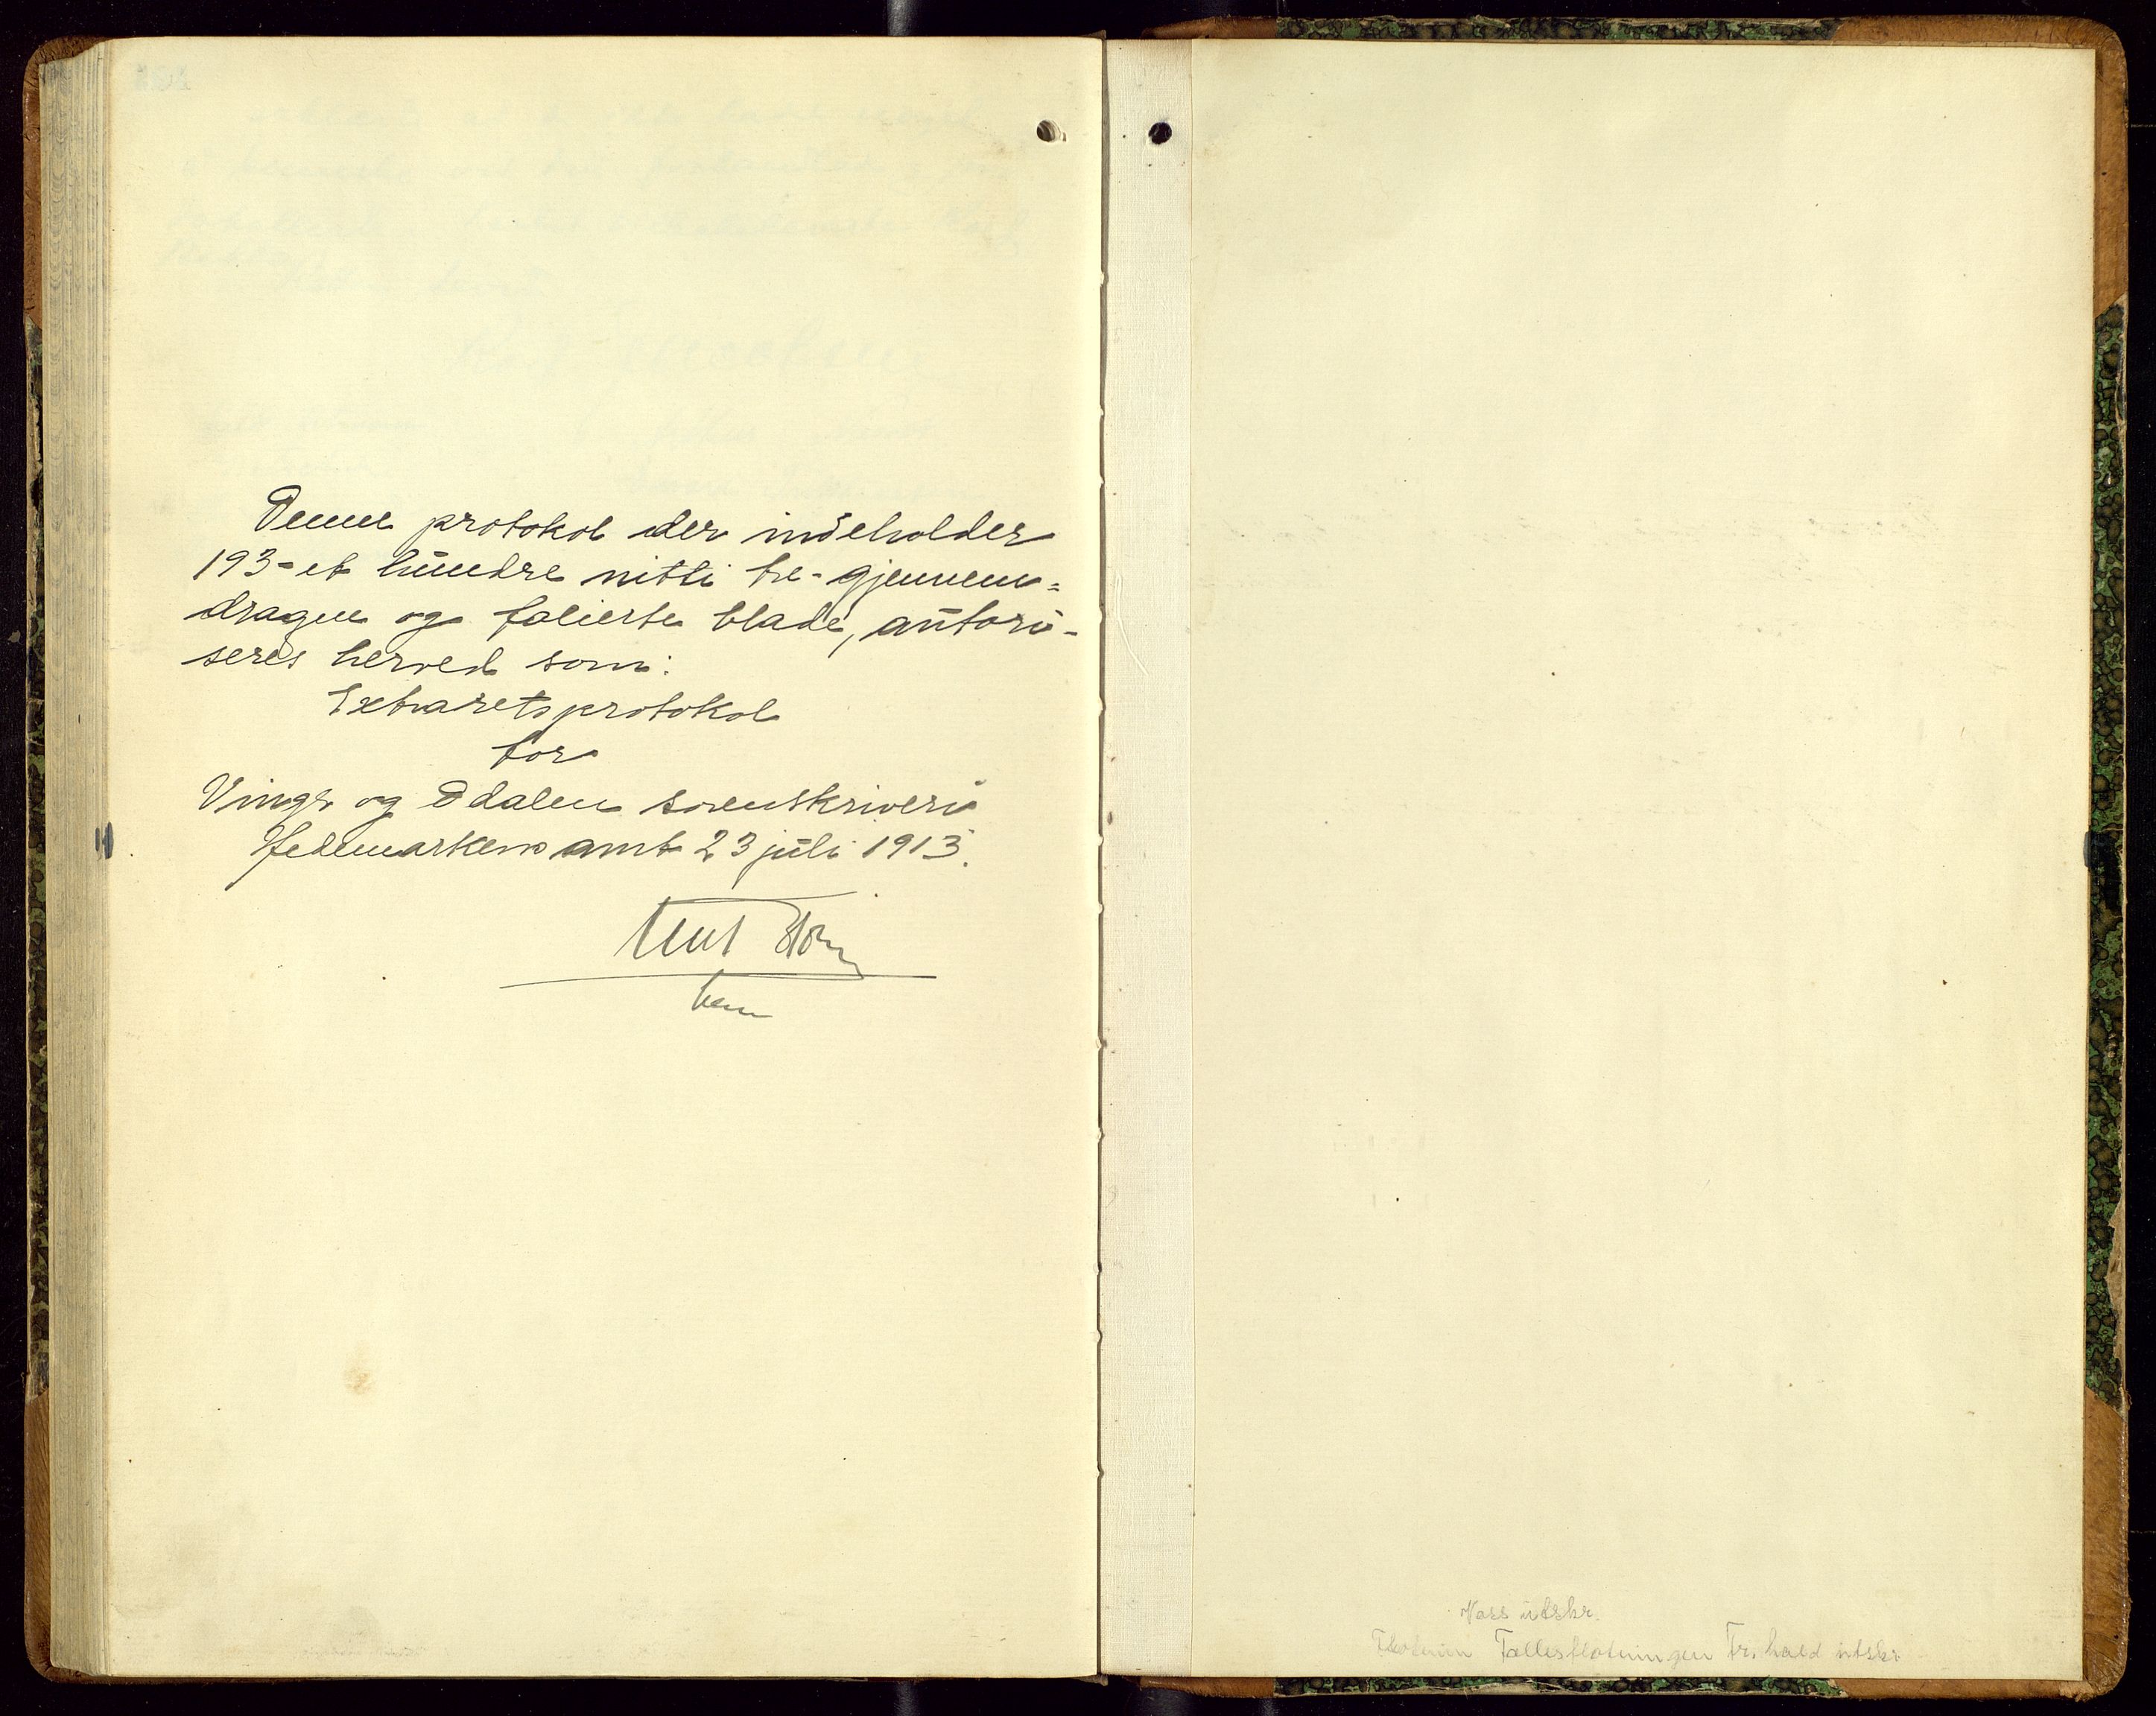 Denne protokol der indeholder
193-et hundre nitti tre-gjennem=
dragne og folierte blade, autori-
seres herved som:
Extraretsprotokol
for
Vinger og Odalen sorenskriveri
Hedemarkens amt 23 juli 1913.
Knut
Vass utskr.
Fællesfløtningen Fr.hald utskr.